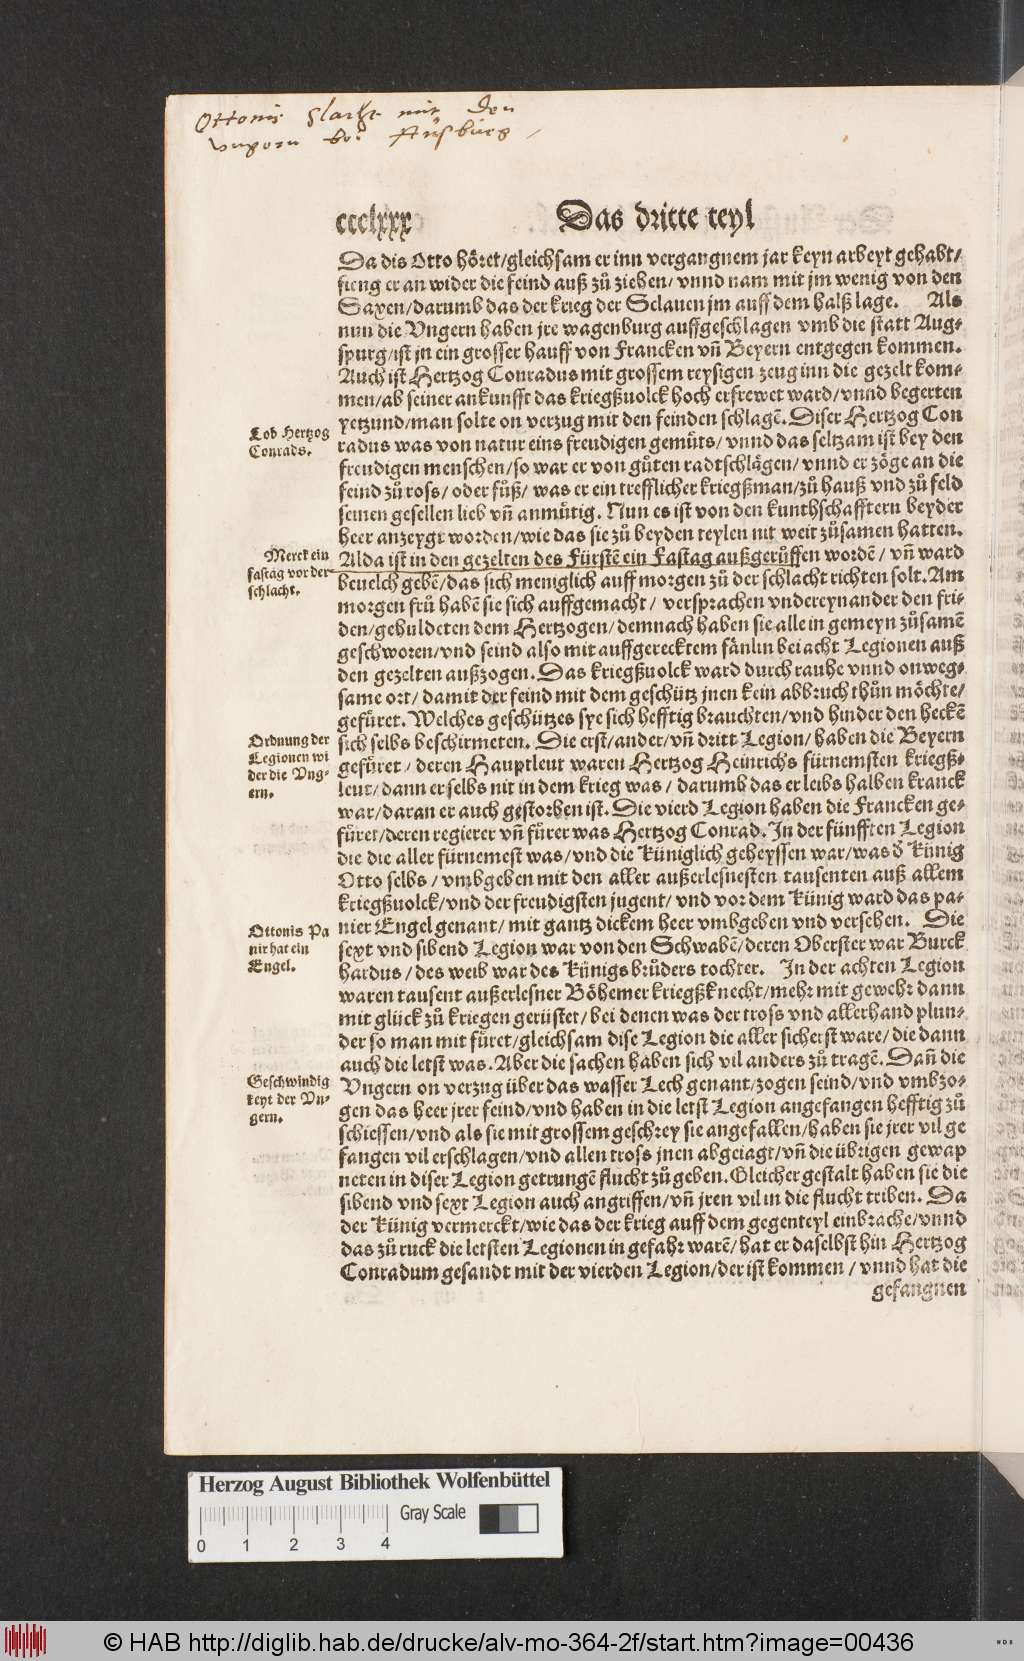 Ottonis slacht mit den
vngorn bei Aüsbürg
ccclxxx
Das dritte teyl
Da dis Otto höret/gleichsam er inn vergangnem jar keyn arbeyt gehabt/
fieng er an wider die feind auß zů ziehen/ vnnd nam mit jm wenig von den
Saxen/darumb das der krieg der Sclauen jm auff dem halß lage. Als
nun die Vngern haben jre wagenburg auffgeschlagen vmb die statt Aug-
spurg/ist jn ein grosser hauff von Francken vñ Beyern entgegen kommen.
Auch ist Hertzog Conradus mit grossem reysigen zeug inn die gezelt kom-
men/ab seiner ankunfft das kriegßuolck hoch erfrewet ward/vnnd begerten
yetzund/man solte on verzug mit den feinden schlagē. Diser Hertzog Con
Lob Hertzog
Conrads.
radus was von natur eins freudigen gemůts/ vnnd das seltzam ist bey den
freudigen menschen/so war er von gůten radtschlägen/ vnnd er zöge an die
feind zů ross/ oder fůß/ was er ein trefflicher kriegßman/zů hauß vnd zů feld
seinen gesellen lieb vñ anmůtig. Nun es ist von den kunthschafftern beyder
heer anzeygt worden/wie das sie zů beyden teylen nit weit zůsamen hatten.
Merck ein
fastag vor der
schlacht.
Alda ist in den gezelten des Fürstē ein Fastag außgerůffen wordē/ vñ ward
beuelch gebē/das sich meniglich auff morgen zů der schlacht richten solt. Am
morgen frů habē sie sich auffgemacht/ versprachen vndereynander den fri-
den/gehuldeten dem Hertzogen/demnach haben sie alle in gemeyn zůsamē
geschworen/vnd seind also mit auffgerecktem fänlin bei acht Legionen auß
den gezelten außzogen. Das kriegßuolck ward durch rauhe vnnd onweg-
same ort/damit der feind mit dem geschütz jnen kein abbruch thůn möchte/
gefůret. Welches geschützes sye sich hefftig brauchten/vnd hinder den heckē
Ordnung der
Legionen wi
der die Vng-
ern.
sich selbs beschirmeten. Die erst/ander/vñ dritt Legion/haben die Beyern
gefůret/ deren Hauptleut waren Hertzog Heinrichs fürnemsten kriegß-
leut/dann er selbs nit in dem krieg was/ darumb das er leibs halben kranck
war/daran er auch gestorben ist. Die vierd Legion haben die Francken ge-
fůret/deren regierer vñ fůrer was Hertzog Conrad. In der fünfften Legion
die die aller fürnemest was/vnd die Küniglich geheyssen war/was d̕ Künig
Otto selbs/ vmbgeben mit den aller außerlesnesten tausenten auß allem
kriegßuolck/vnd der freudigsten jugent/ vnd vor dem Künig ward das pa-
Ottonis Pa
nir hat ein
Engel.
nier Engel genant/ mit gantz dickem heer vmbgeben vnd versehen. Die
sext vnd sibend Legion war von den Schwabē/deren Oberster war Burck
hardus/des weib war des Künigs brůders tochter. In der achten Legion
waren tausent außerlesner Böhemer kriegßknecht/mehr mit gewehr dann
mit glück zů kriegen gerüstet/ bei denen was der tross vnd allerhand plun-
der so man mit fůret/gleichsam dise Legion die aller sicherst ware/ die dann
auch die letst was. Aber die sachen haben sich vil anders zů tragē. Dañ die
Geschwindig
keyt der Vn-
gern.
Vngern on verzug über das wasser Lech genant/zogen seind/vnd vmbzo-
gen das heer jrer feind/vnd haben in die letst Legion angefangen hefftig zů
schiessen/vnd als sie mit grossem geschrey sie angefallen/haben sie jrer vil ge
fangen vil erschlagen/vnd allen tross jnen abgeiagt/vñ die übrigen gewap
neten in diser Legion getrungē flucht zů geben. Gleicher gestalt haben sie die
sibend vnd sext Legion auch angriffen/vñ jren vil in die flucht triben. Da
der Künig vermerckt/wie das der krieg auff dem gegenteyl einbrache/vnnd
das zů ruck die letsten Legionen in gefahr warē/hat er daselbst hin Hertzog
Conradum gesandt mit der vierden Legion/der ist kommen/ vnnd hat die
gefangnen
Herzog August Bibliothek Wolfenbüttel
Gray Scale
0 1 2 3 4
© HAB http://diglib.hab.de/drucke/alv-mo-364-2f/start.htm?image=00436